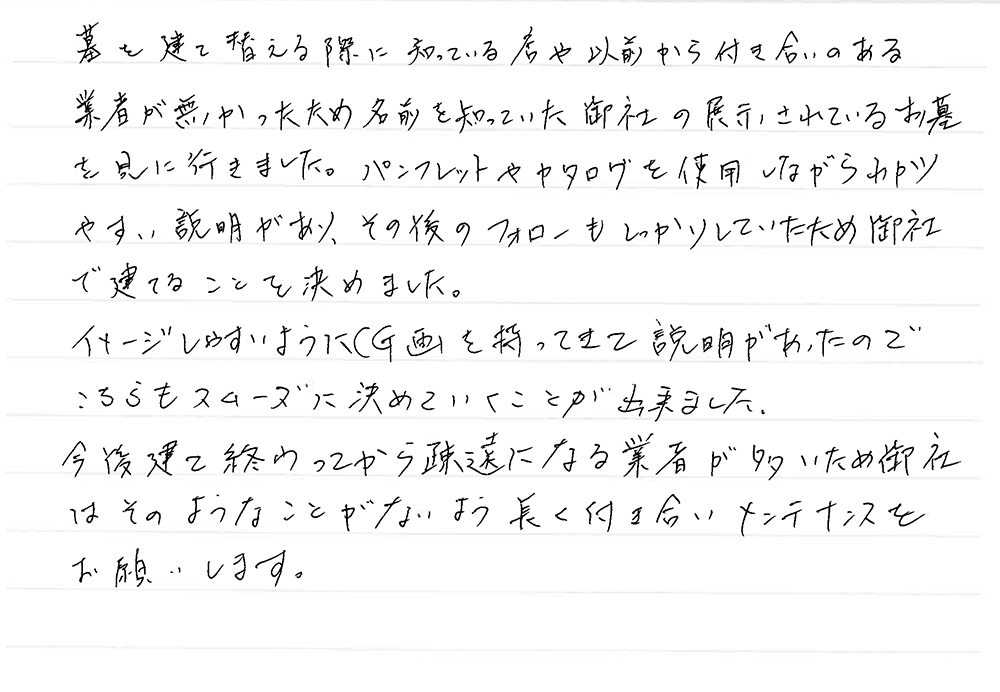 墓を建て替える際に知っている店や以前から付き合いのある
業者が無かったため名前を知っていた御社の展示されているお墓
を見に行きました。パンフレットやカタログを使用しながらわかり
やすい説明があり、その後のフォローもしっかりしていたため御社
で建てることを決めました。
イメージしやすいようにCG画を持ってきて説明があったので
こちらもスムーズに決めていくことが出来ました。
今後建て終わってから疎遠になる業者が多いため御社
はそのようなことがないよう長く付き合いメンテナンスを
お願いします。